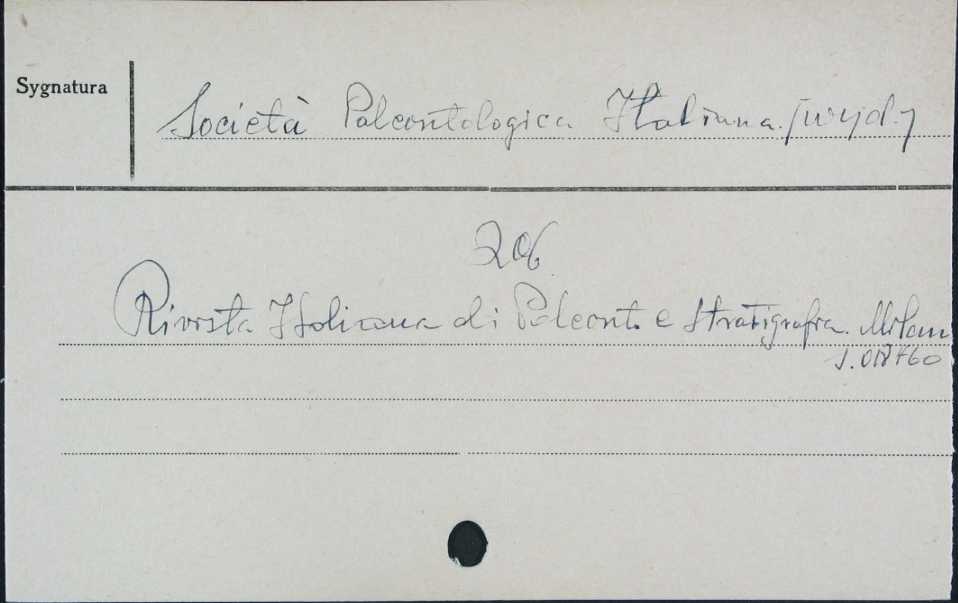 Sygnatura
Società Paleontologica Italiana. [wyd.]
Zob.
Rivista Italiana di Paleont. e Stratigrafia. Milan